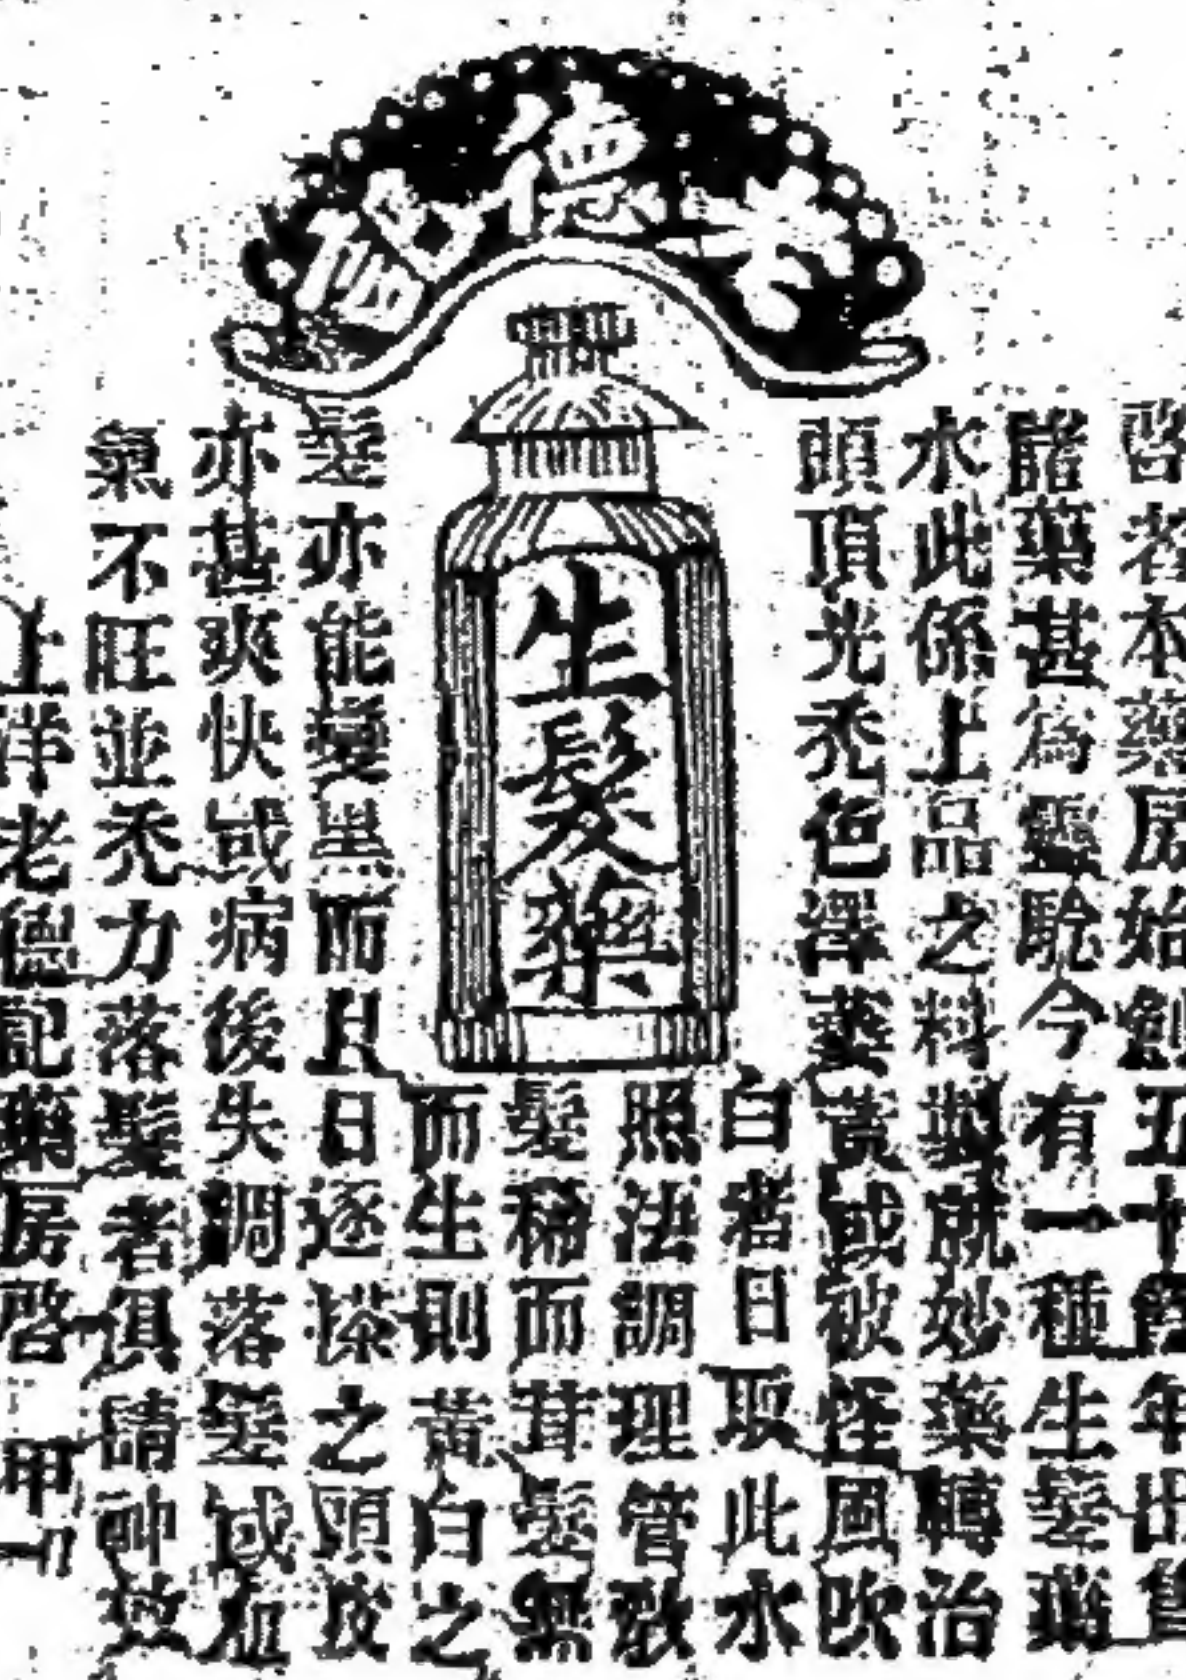 老德記
生髮藥
啓者本藥房始創五十餘年出售
諸藥甚為靈驗今有一種生髮藥
水此係上品之料製就妙藥轉治
頭頂光禿色澤萎黃或被怪風吹
白者日取此水
照法調理管教
髮稀而茸髮無
而生則黃白之
髮亦能變黑而且日逐搽之頭皮
亦甚爽快或病後失調落髮或血
氣不旺並禿力落髮者俱請神效
上洋老德記藥房啓